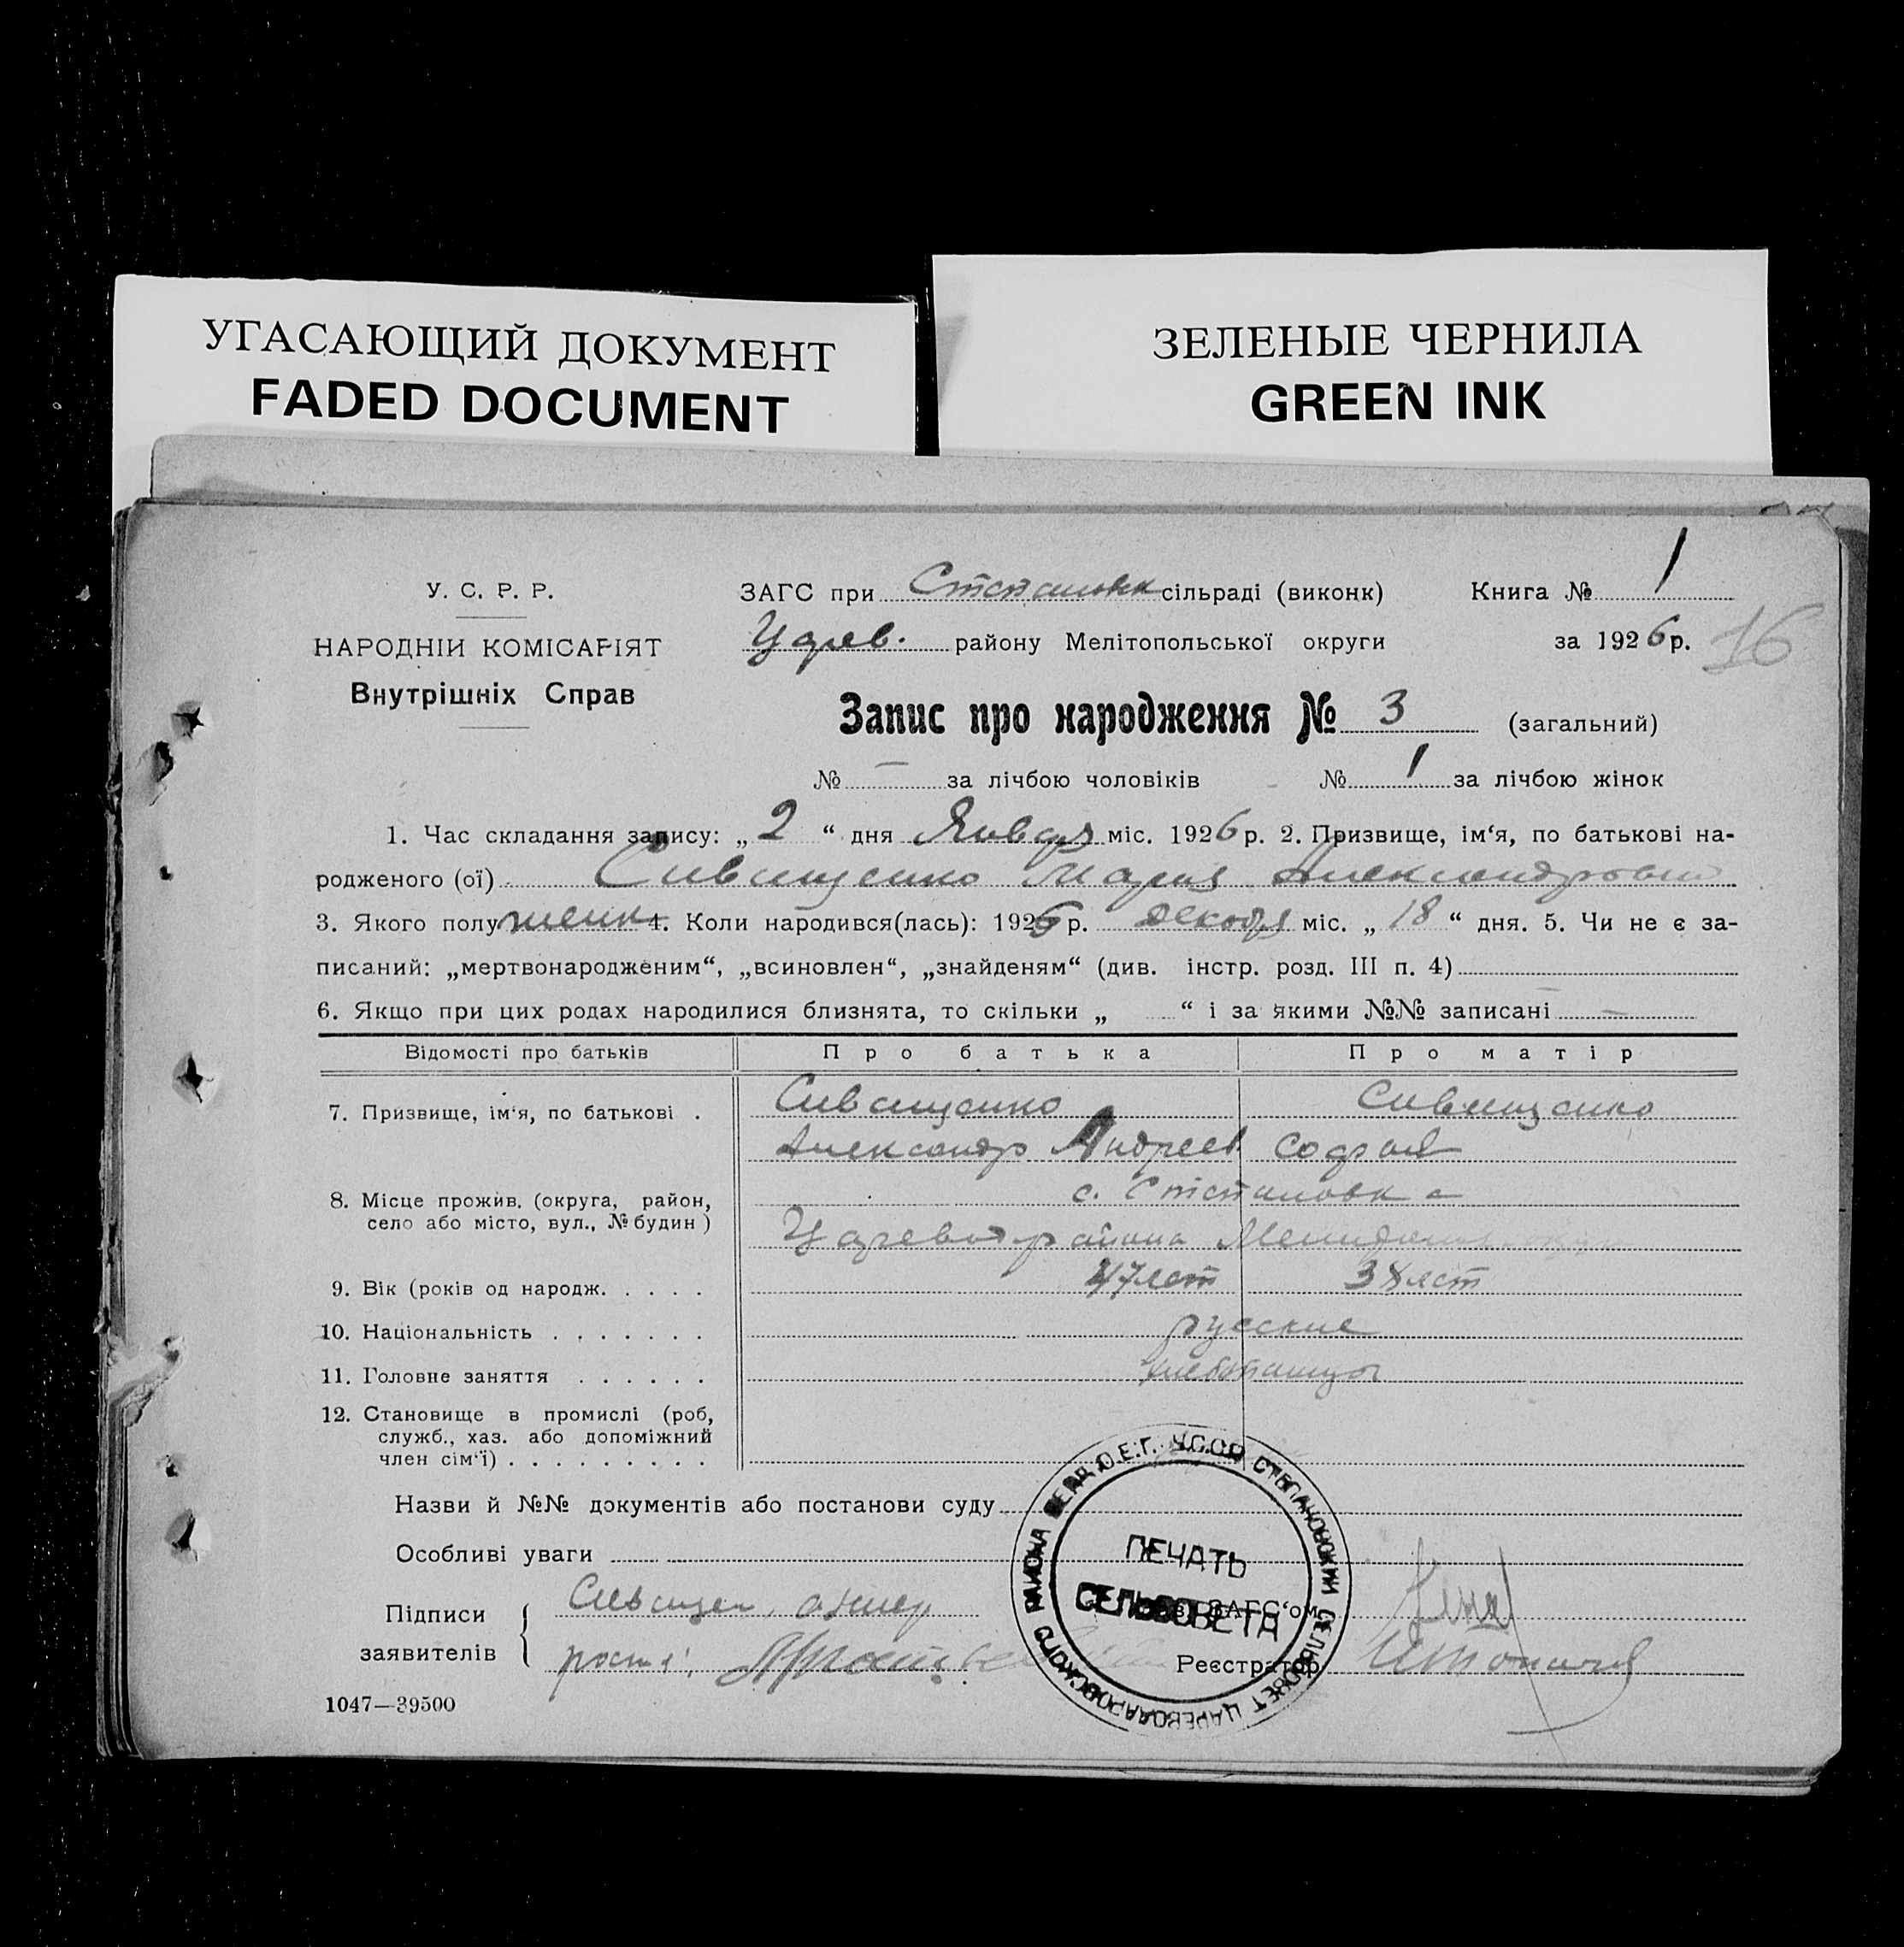 УГАСАЮЩИЙ ДОКУМЕНТ
FADED DOCUMENT
ЗЕЛЕНЫЕ ЧЕРНИЛА
GREEN INK
У. С. Р. Р.
НАРОДНІИ КОМІСАРІЯТ
Внутрішніх Справ
ЗАГС при Степановк сільраді (виконк) Книга № 1
Царев. району Мелітопольської округи за 1926 р. 16
Запис про народження № 3 (загальний)
№ — за лічбою чоловіків № 1 за лічбою жінок
1. Час складання запису: „ 2 “ дня Января міс. 1926 р. 2. Призвище, ім‘я, по батькові на-
родженого (ої) Сиващенко Мария Александровна
3. Якого полу женск 4. Коли народився(лась): 192 р. декабря міс. „ 18 “ дня. 5. Чи не є за-
писаний: „мертвонародженим“, „всиновлен“, „знайденям“ (див. інстр. розд. III п. 4)
6. Якщо при цих родах народилися близнята, то скільки „ “ і за якими №№ записані —
Відомості про батьків Про батька Про матір
7. Призвище, ім‘я, по батькові . Сиващенко Сиващенко
Александр Андреев София
8. Місце прожив. (округа, район, село або місто, вул., № будин ) с. Степановка
Царевот района
9. Вік (років од народж. . . . . 47 лет 38 лет
10. Національність . . . . . . . русские
11. Головне заняття . . . . . . хлебопашцы
12. Становище в промислі (роб,
служб., хаз. або допоміжний
член сім‘ї) . . . . . . . . .
Назви й №№ документів або постанови суду
Особливі уваги
Підписи
заявителів
ЗАГС‘ом
Реєстратор
ПЕЧАТЬ
СЕЛЬСОВЕТА
СТЕПАНОВСКИЙ СЕЛЬСОВЕТ ЦАРЕВОДАРОВСКОГО РАЙОНА
1047—39500